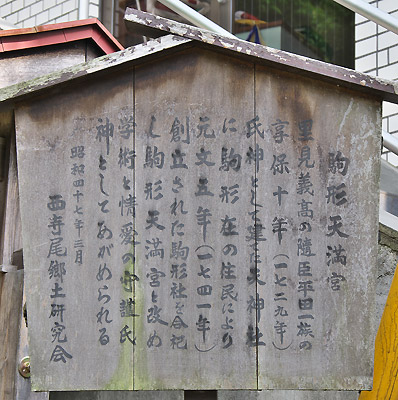 駒形天満宮
里見義高の隨臣平田一族の
享保十年(一七二九年)
氏神として建た天神社
に駒形在の住民により
元文五年(一七四一年)
創立された駒形社を合祀
し駒形天満宮と改め
学術と情愛の守護氏
神としてあがめられる
昭和四十七年三月
西寺尾郷土研究会